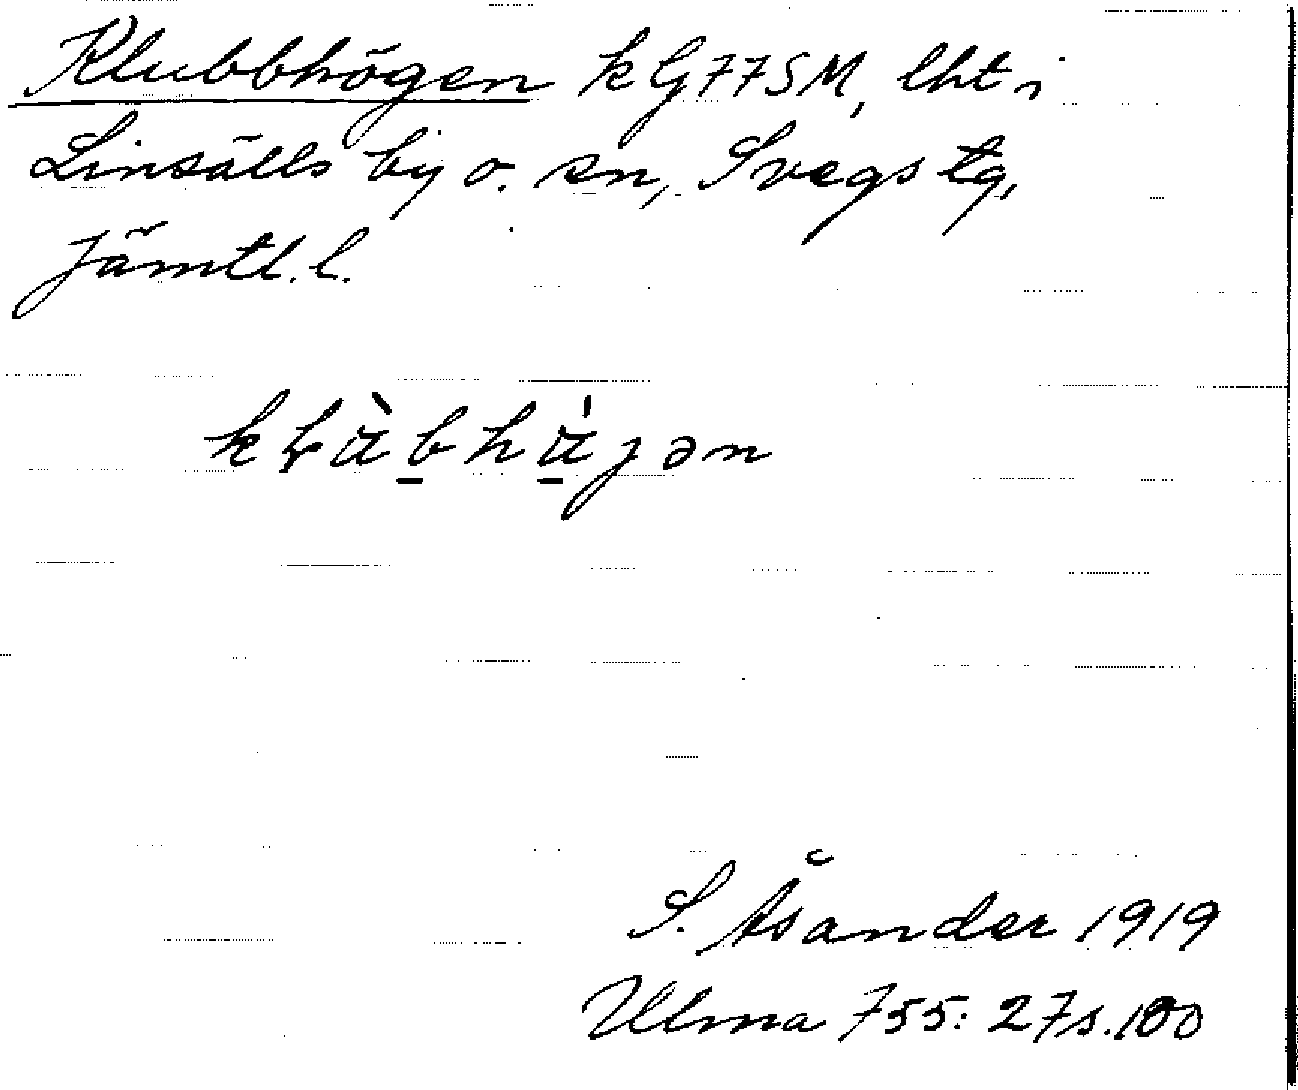 Klubbhögen kGF7SM, lht i
Linsälls by o. sn, Svegs tg,
Jämtl. l.
S. Åsander 1919
Ulma 755: 27 s. 100